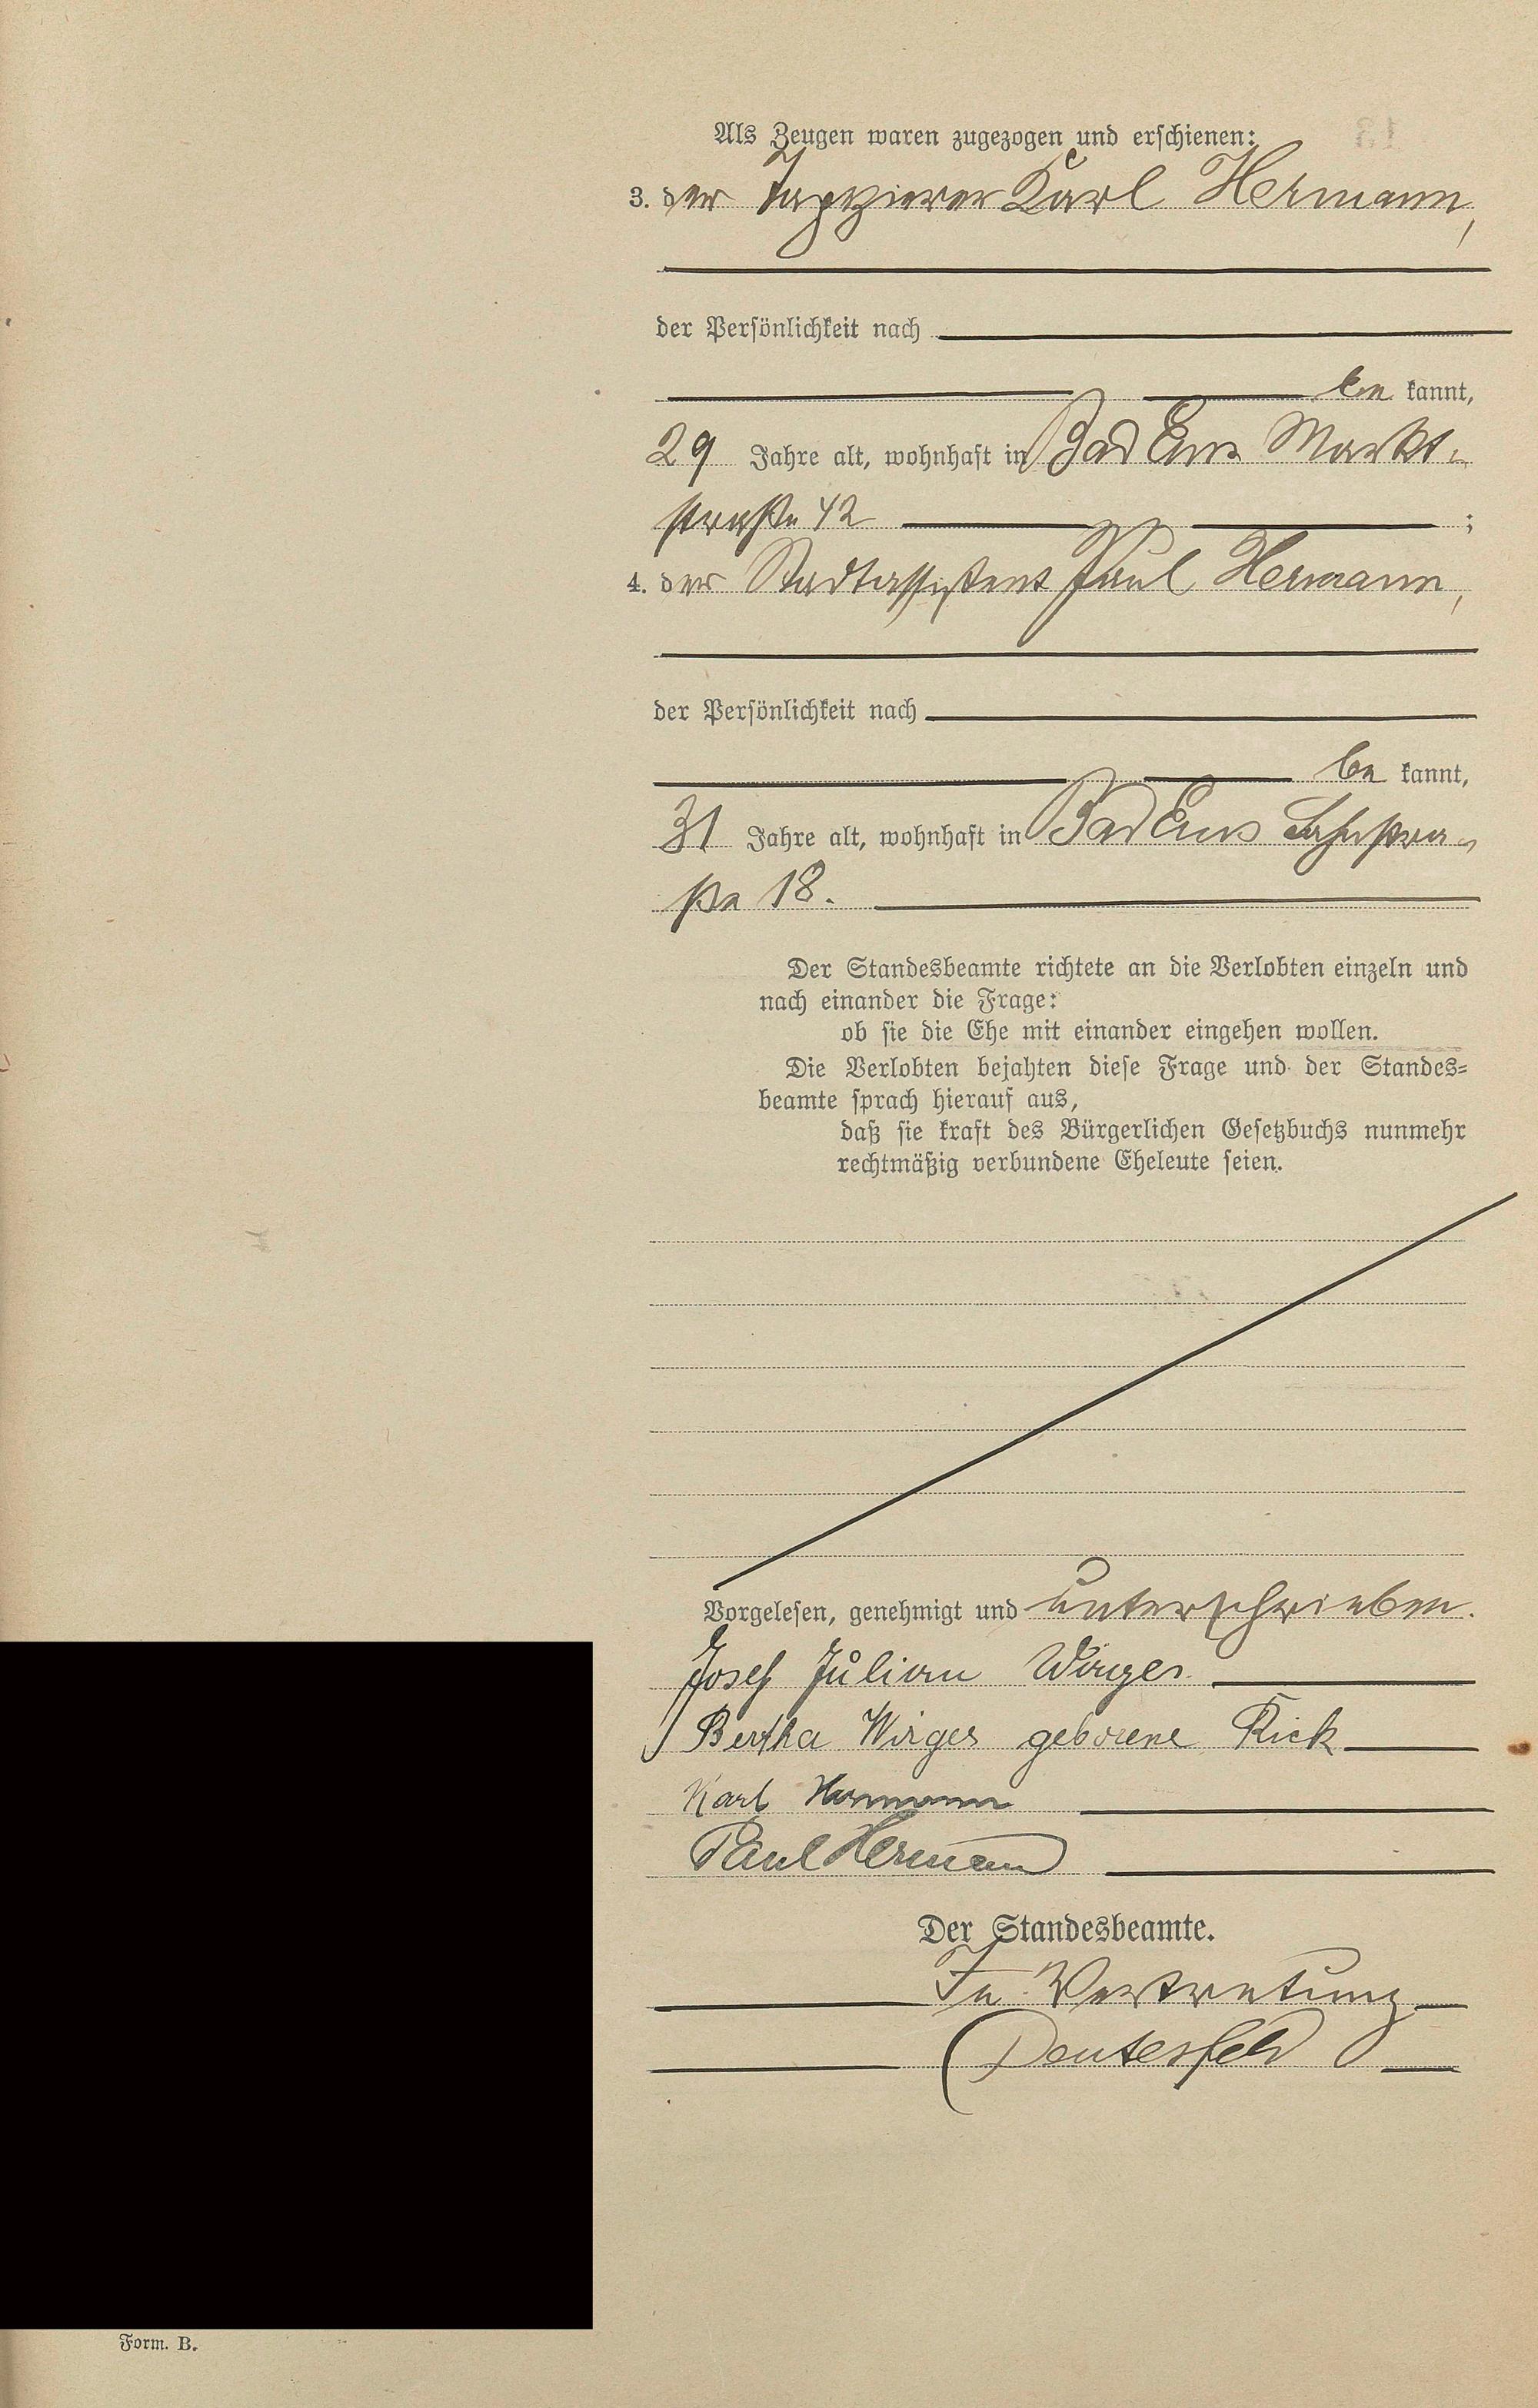 Als Zeugen waren zugezogen und erschienen:
3. der Tapezierer Karl Hermann,
der Persönlichkeit nach
be kannt,
29 Jahre alt, wohnhaft in Bad Ems Markt-
straße 42 ;
4. der Stadtassistent Paul Hermann,
der Persönlichkeit nach
be kannt,
31 Jahre alt, wohnhaft in Bad Ems Lahnstra-
ße 18.
Der Standesbeamte richtete an die Verlobten einzeln und
nach einander die Frage:
ob sie die Ehe mit einander eingehen wollen.
Die Verlobten bejahten diese Frage und der Standes-
beamte sprach hierauf aus,
daß sie kraft des Bürgerlichen Gesetzbuchs nunmehr
rechtmäßig verbundene Eheleute seien.
Vorgelesen, genehmigt und unterschrieben.
Josef Julian Wirges
Bertha Wirges geborene Kick
Karl Hermann
Paul Hermann
Der Standesbeamte.
In Vertretung
Deutesfeld
Form. B.